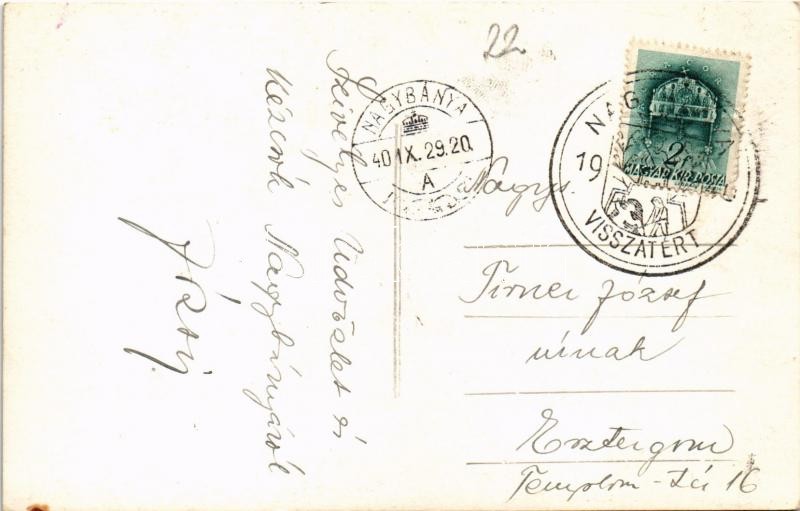 22
Szivélyes Üdvözlet és
Kézcsók Nagybányáról
NAGYBÁNYA
40 IX. 29. 20.
A
NAGYBÁNYA
19
VISSZATÉRT
2f
MAGYAR KIR. POSTA
Nagys.
József
urnak
Esztergom
Templom - tér 16